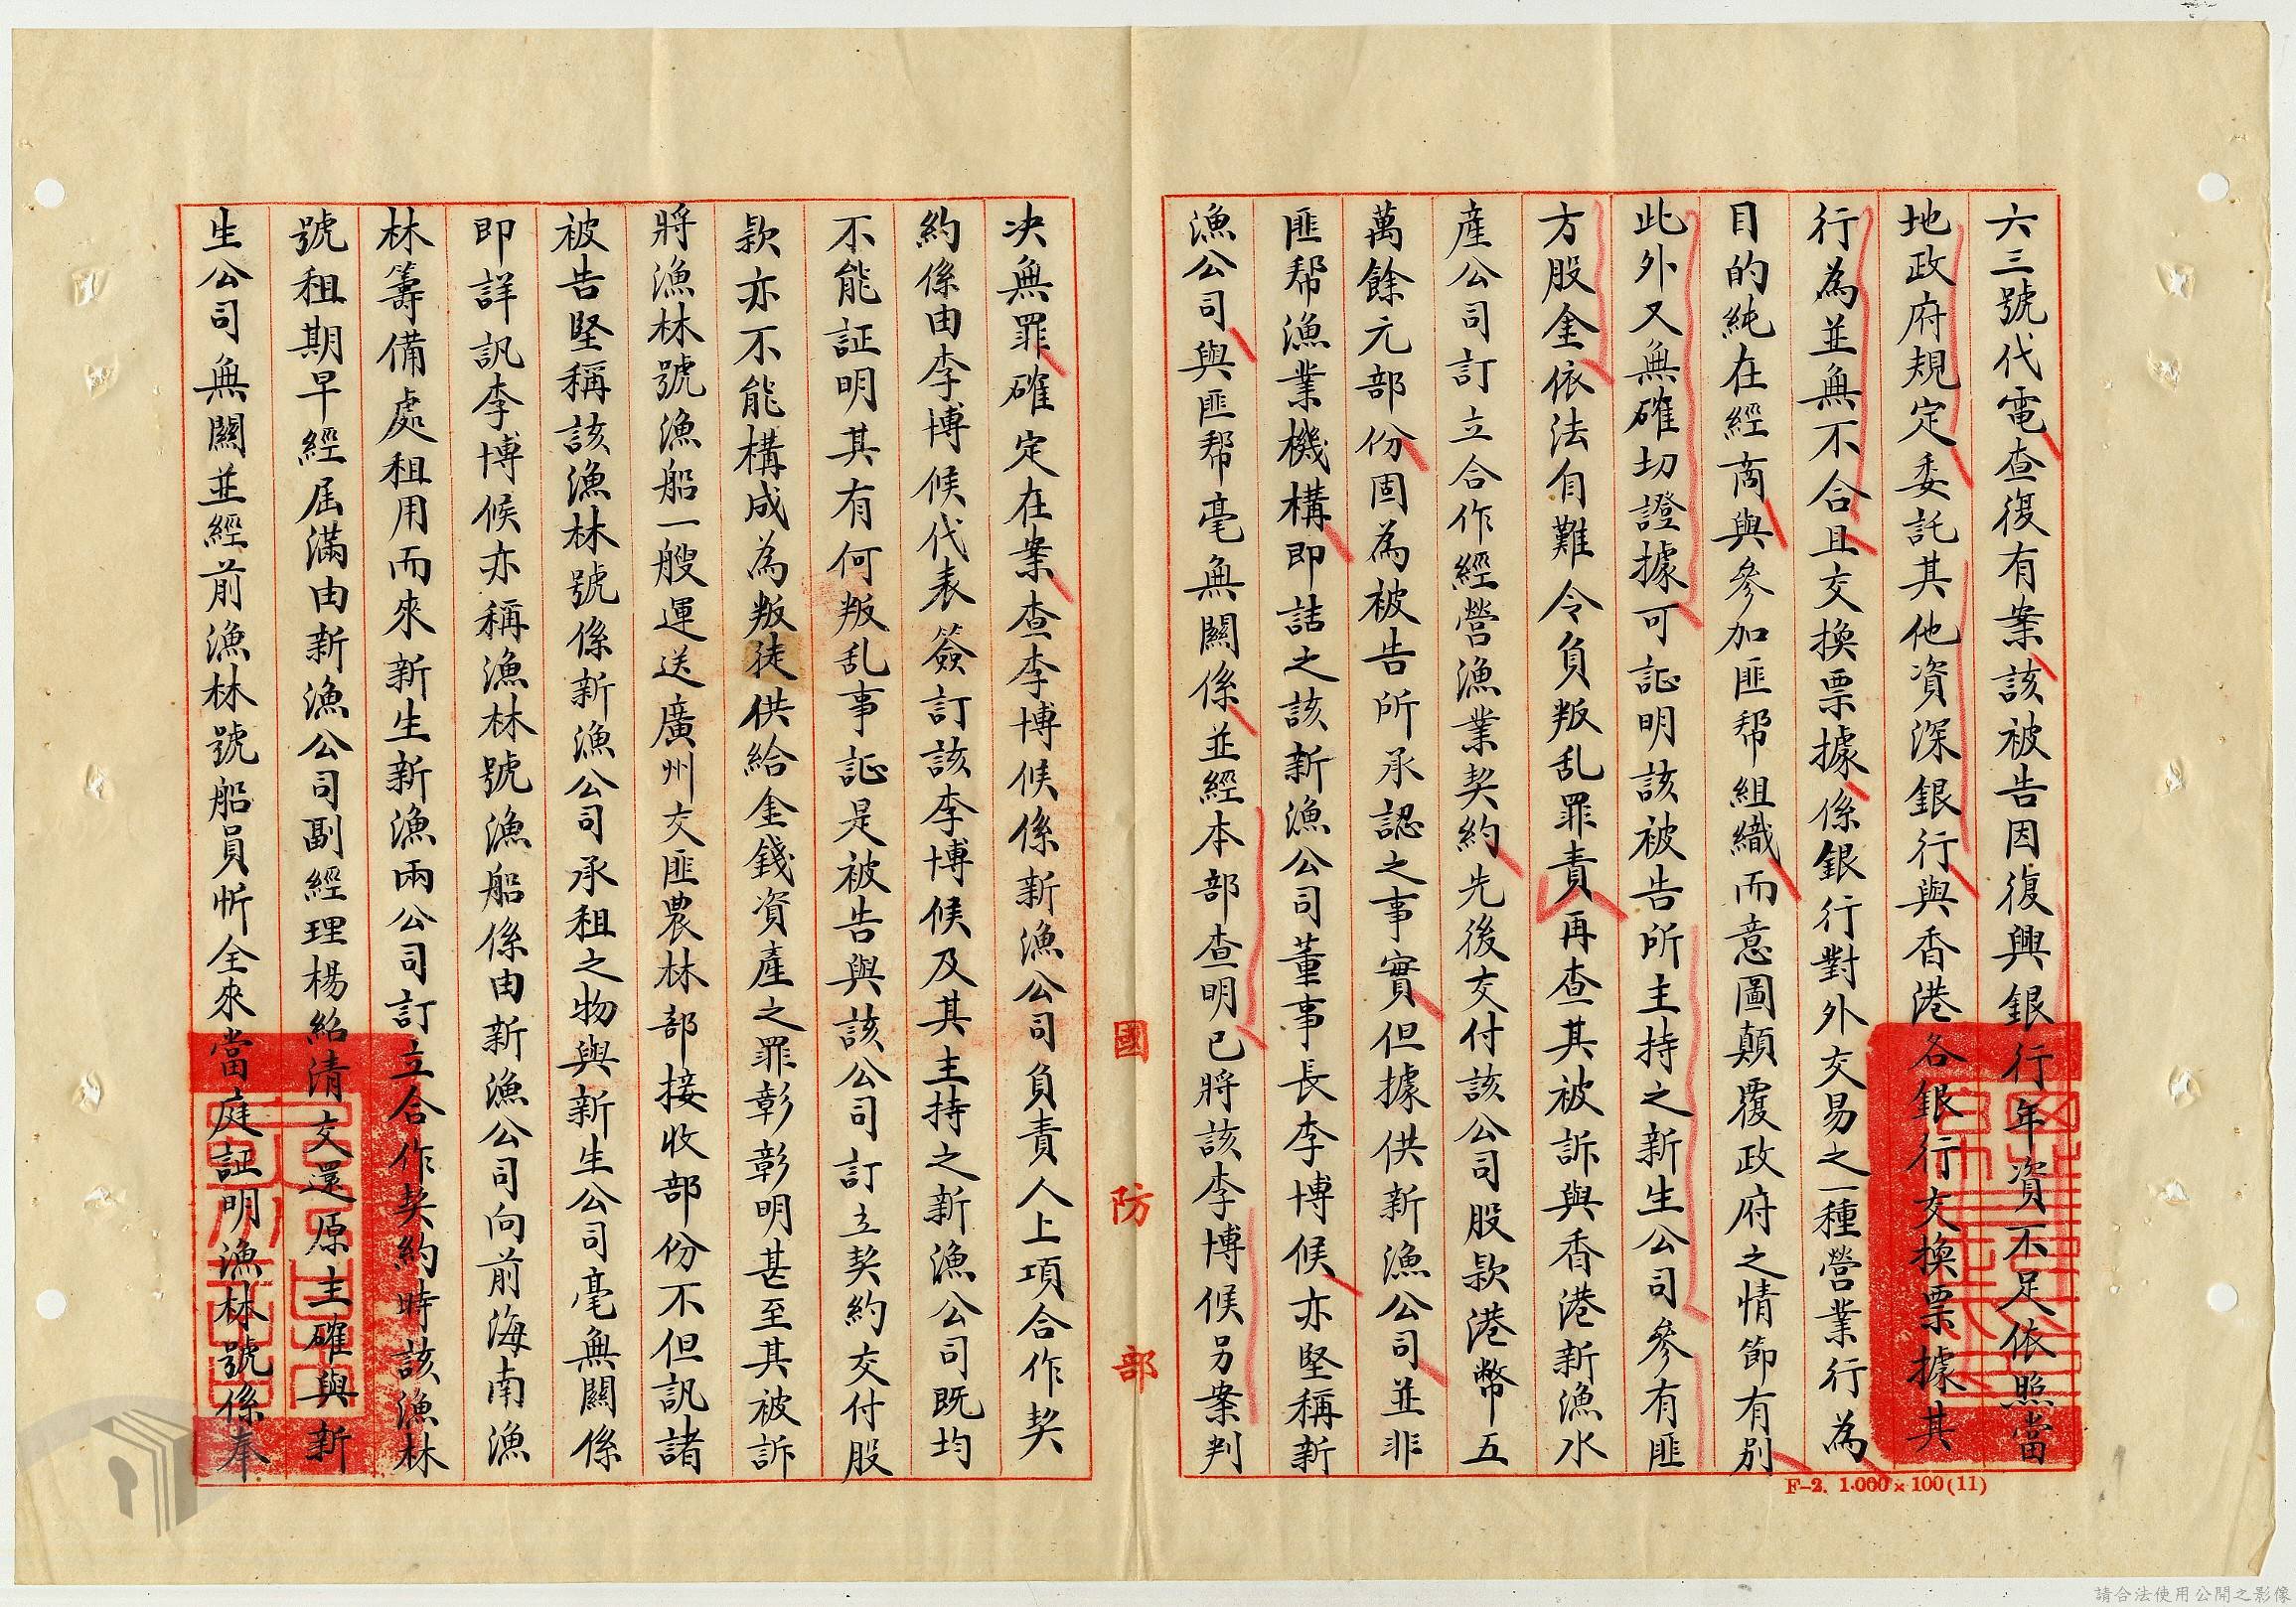 六三號代電查復有案該被告因復興銀行年資不足依照當
地政府規定委託其他資深銀行與香港各銀行交換票據其
行為並無不合且交換票據係銀行對外交易之一種營業行為
目的純在經商與參加匪幫組織而意圖顛覆政府之情節有別
此外又無確切證據可証明該被告所主持之新生公司參有匪
方股金依法自難令負叛乱罪責再查其被訴與香港新漁水
產公司訂立合作經營漁業契約先後交付該公司股款港幣五
萬餘元部份固為被告所承認之事實但據供新漁公司並非
匪幫漁業機構即詰之該新漁公司董事長李博候亦堅稱新
漁公司與匪幫毫無關係並經本部查明已將該李博候另案判
國防部
決無罪確定在案查李博候係新漁公司負責人上項合作契
約係由李博候代表簽訂該李博候及其主持之新漁公司既均
不能証明其有何叛乱事証是被告與該公司訂立契約交付股
款亦不能構成為叛徒供給金錢資產之罪彰彰明甚至其被訴
將漁林號漁船一艘運送廣州交匪農林部接收部份不但訊諸
被告堅稱該漁林號係新漁公司承租之物與新生公司毫無關係
即詳訊李博候亦稱漁林號漁船係由新漁公司向前海南漁
林籌備處租用而來新生新漁兩公司訂立合作契約時該漁林
號租期早經屆滿由新漁公司副經理楊紹清交還原主確與新
生公司無關並經前漁林號船員忻全來當庭証明漁林號係奉
F-2. 1.000×100(11)
請合法使用公開之影像